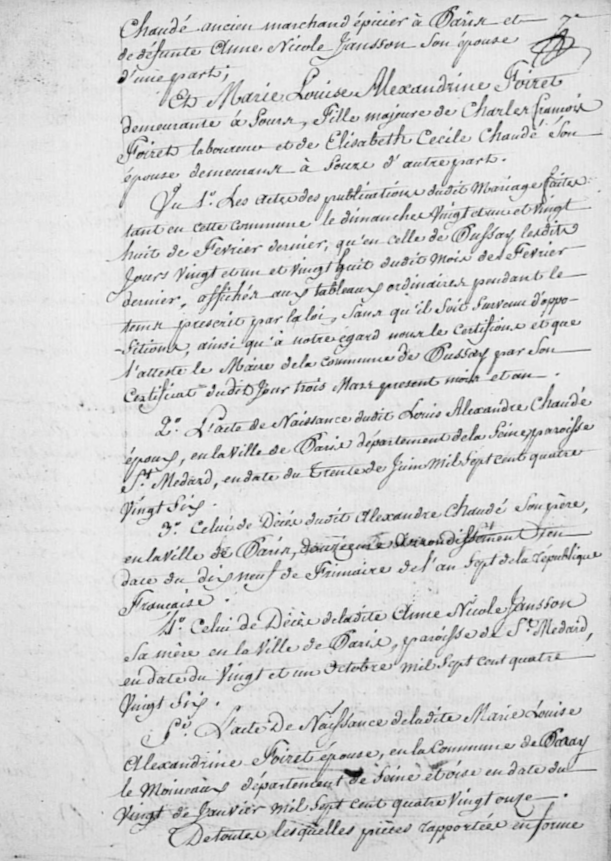 Chaudé ancien marchand épicier à Paris et
de défunte Anne Nicole Jansson son épouse
d'une part;
Et Marie Louise Alexandrine Foiret
demeurante à Sours, Fille majeure de Charles francois
Foiret laboureur et de Elisabeth Cecile Chaudé Son
épouse demeurans à Souze d'autre part.
Vu 1.° Les actes des publications dudit Mariage faites
tant en cette commune le dimanche Vingt et un et Vingt
huit de Fevrier dernier, qu'en celle de Pussay lesdits
Jours Vingt et un et Vingt huit dudit Mois de Fevrier
dernier, affichés aux tableaux ordinaires pendant le
tems prescrit par la loi, Sans qu'il Soit Survenu d'oppo-
sitions, ainsi qu'à notre égard nous le Certifions et que
l'atteste le Maire de la commune de Pussay par Son
Certificat dudit Jour trois Mars present mois et an.
2.° L'acte de Naissance dudit Louis Alexandre Chaudé
époux, en la Ville de Paris département de la Seine paroisse
St. Medard, en date du Trente de Juin Mil Sept cent quatre
Vingt Six.
3.° Celui de Décès dudit Alexandre Chaudé Son père,
en la Ville de Paris, douzieme arrondissement en
date du dix neuf de Frimaire de l'an Sept de la république
Française.
4.° Celui de Décès de ladite Anne Nicole Jansson
Sa mère en la Ville de Paris, paroisse de St. Medard,
en date du Vingt et un Octobre Mil Sept Cent quatre
Vingt Six.
5.° L'acte De Naissance de ladite Marie Louise
Alexandrine Foiret épouse, en la Commune de Paray
le Moineau département de Seine et oise en date du
Vingt de Janvier Mil Sept cent quatre Vingt onze.
De toutes lesquelles pièces rapportées en forme